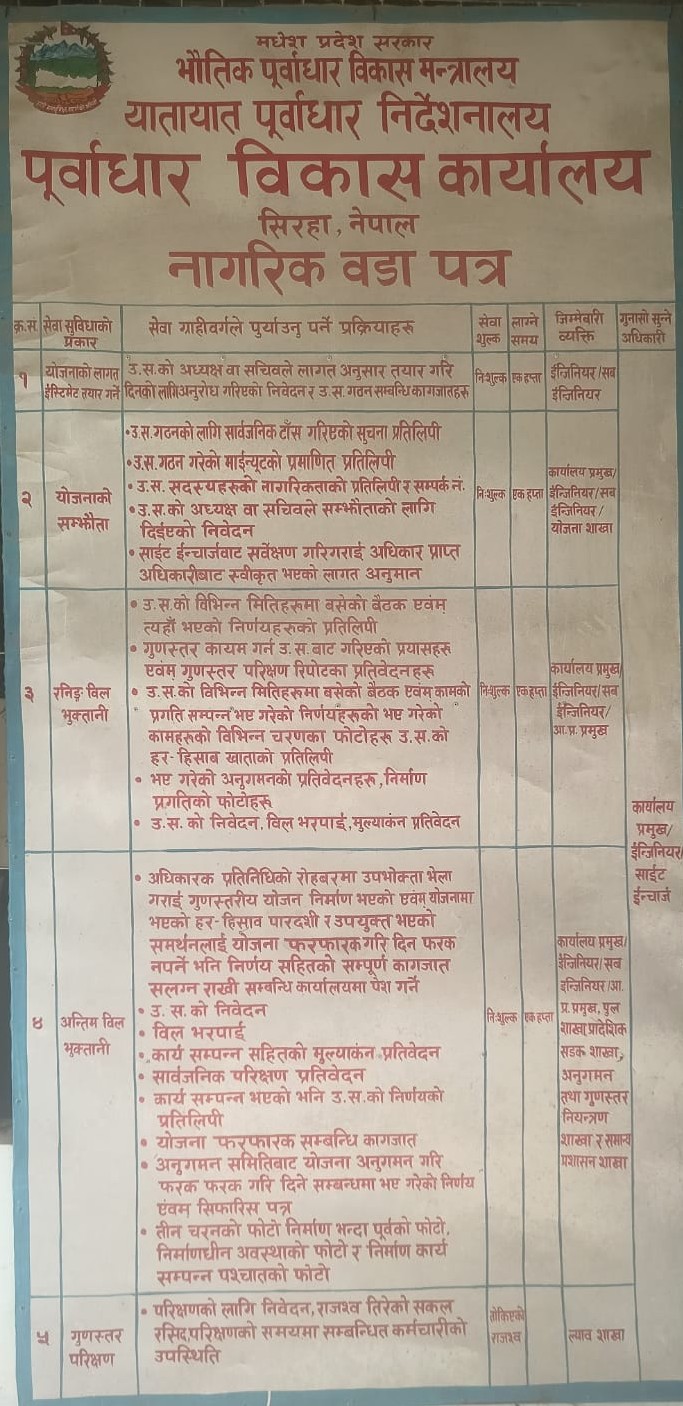 मधेश प्रदेश सरकार
भौतिक पूर्वाधार विकास मन्त्रालय
यातायात पूर्वाधार निर्देशनालय
पूर्वाधार विकास कार्यालय
सिरहा, नेपाल
नागरिक वडा पत्र
क्र.स.
सेवा सुविधाको
प्रकार
सेवा ग्राहीवर्गले पुर्याउनु पर्ने प्रक्रियाहरु
सेवा
शुल्क
लाग्ने
समय
जिम्मेबारी
व्यक्ति
गुनासो सुन्ने
अधिकारी
१
योजनाको लागत
ईस्टिमेट तयार गर्ने
उ.स.को अध्यक्ष वा सचिवले लागत अनुसार तयार गरि
दिनको लागि अनुरोध गरिएको निवेदन र उ.स. गठन सम्बन्धि कागजातहरु
निःशुल्क
एक हप्ता
ईन्जिनियर/सब
ईन्जिनियर
२
योजनाको
सम्झौता
• उ.स.गठनको लागि सार्वजनिक टाँस गरिएको सुचना प्रतिलिपी
• उ.स.गठन गरेको माईन्यूटको प्रमाणित प्रतिलिपी
• उ.स. सदस्यहरुको नागरिकताको प्रतिलिपी र सम्पर्क नं.
• उ.स.को अध्यक्ष वा सचिवले सम्झौताको लागि
दिईएको निवेदन
• साईट ईन्चार्जवाट सर्वेक्षण गरिगराई अधिकार प्राप्त
अधिकारीबाट स्वीकृत भएको लागत अनुमान
निःशुल्क
एक हप्ता
कार्यालय प्रमुख/
ईन्जिनियर/सब
ईन्जिनियर/
योजना शाखा
३
रनिङ्ग विल
भुक्तानी
• उ.स.को विभिन्न मितिहरुमा बसेको बैठक एवंम्
त्यहाँ भएको निर्णयहरुको प्रतिलिपी
• गुणस्तर कायम गर्न उ.स.बाट गरिएको प्रयासहरु
एवंम गुणस्तर परिक्षण रिपोटका प्रतिवेदनहरु
• उ.स.को विभिन्न मितिहरुमा बसेको बैठक एवंम् कामको
प्रगति सम्पन्न भए गरेको निर्णयहरुको भए गरेको
कामहरुको विभिन्न चरणका फोटोहरु उ.स.को
हर-हिसाब खाताको प्रतिलिपी
• भए गरेको अनुगमनको प्रतिवेदनहरु, निर्माण
प्रगतिको फोटोहरु
• उ.स.को निवेदन, विल भरपाई, मुल्याकंन प्रतिवेदन
निःशुल्क
एक हप्ता
कार्यालय प्रमुख/
ईन्जिनियर/सब
ईन्जिनियर/
आ.प्र. प्रमुख
कार्यालय
प्रमुख/
ईन्जिनियर/
साईट
ईन्चार्ज
४
अन्तिम विल
भुक्तानी
• अधिकारक प्रतिनिधिको रोहबरमा उपभोक्ता भेला
गराई गुणस्तरीय योजन निर्माण भएको एवंम् योजनामा
भएको हर-हिसाव पारदर्शी र उपयुक्त भएको
समर्थनलाई योजना फरफारक गरि दिन फरक
नपर्ने भनि निर्णय सहितको सम्पूर्ण कागजात
सलग्न राखी सम्बन्धि कार्यालयमा पेश गर्ने
• उ. स. को निवेदन
• विल भरपाई
• कार्य सम्पन्न सहितको मुल्याकंन प्रतिवेदन
• सार्वजनिक परिक्षण प्रतिवेदन
• कार्य सम्पन्न भएको भनि उ.स.को निर्णयको
प्रतिलिपी
• योजना फरफारक सम्बन्धि कागजात
• अनुगमन समितिबाट योजना अनुगमन गरि
फरक फरक गरि दिने सम्बन्धमा भए गरेको निर्णय
एंवम सिफारिस पत्र
• तीन चरनको फोटो निर्माण भन्दा पूर्वको फोटो,
निर्माणधीन अवस्थाको फोटो र निर्माण कार्य
सम्पन्न पश्चातको फोटो
निःशुल्क
एक हप्ता
कार्यालय प्रमुख/
ईन्जिनियर/सब
ईन्जिनियर/आ.
प्र. प्रमुख, पुल
शाखा, प्रादेशिक
सडक शाखा,
अनुगमन
तथा गुणस्तर
नियन्त्रण
शाखा र समान्य
प्रशासन शाखा
५
गुणस्तर
परिक्षण
• परिक्षणको लागि निवेदन, राजश्व तिरेको सकल
रसिद, परिक्षणको समयमा सम्बन्धित कर्मचारीको
उपस्थिति
तोकिएको
राजश्व
ल्याव शाखा